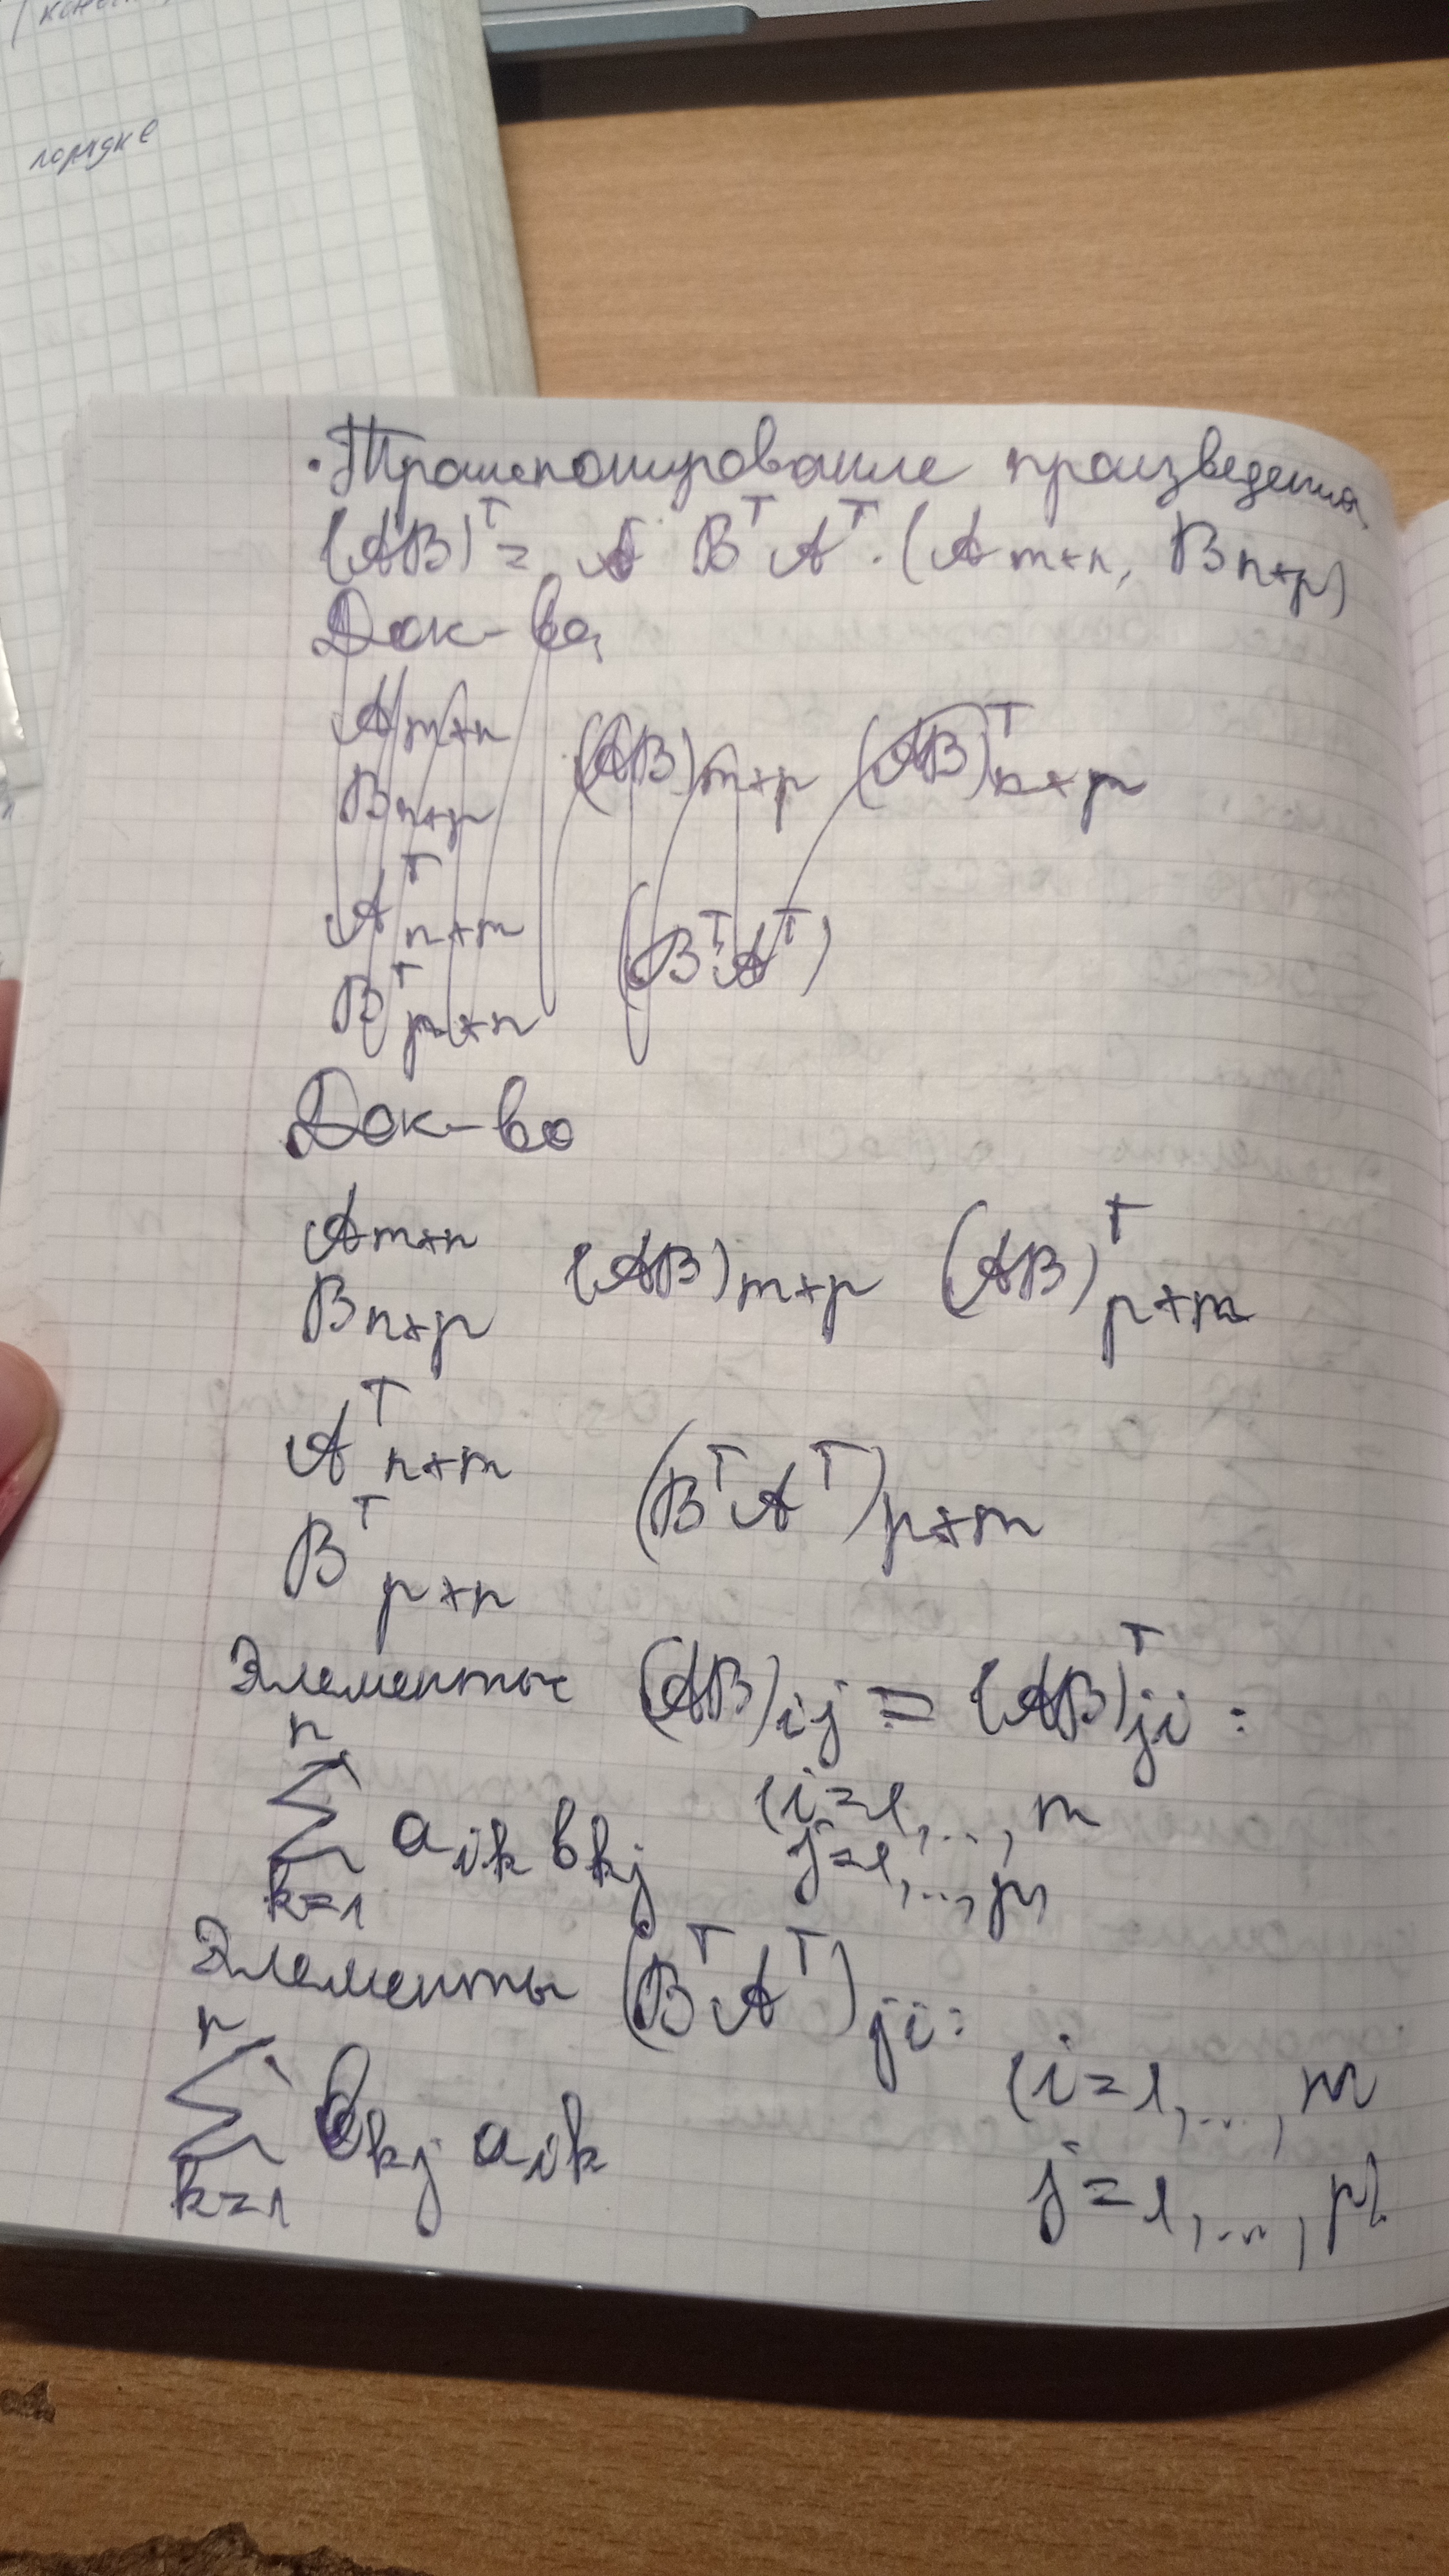 порядке
·Транспонирование произведения
(AB)ᵀ = A BᵀAᵀ. (A m×n, B n×p)
Док-во
A m×n
B n×p (AB) m×p (AB)ᵀ n×p
Aᵀ n×m
Bᵀ p×n (BᵀAᵀ)
Док-во
A m×n
B n×p (AB) m×p (AB)ᵀ p×m
Aᵀ n×m
Bᵀ p×n (BᵀAᵀ) p×m
Элементы (AB)ij = (AB)ᵀji :
n
∑ aik bkj (i=1,..., m
k=1 j=1,..., p)
Элементы (BᵀAᵀ)ji :
n
∑ bkj aik (i=1,..., m
k=1 j=1,..., p)